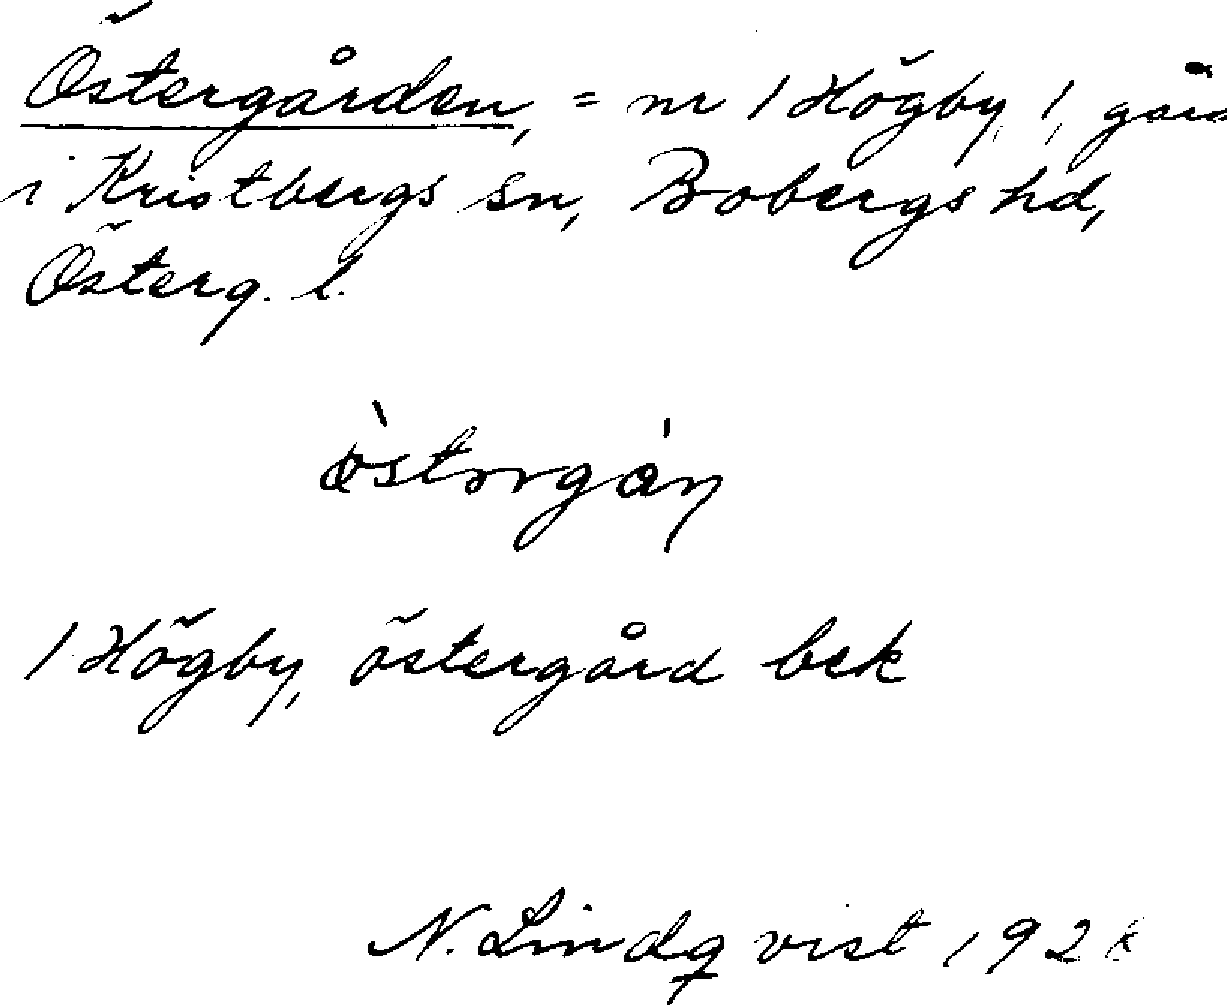 Östergården, = nr 1 Högby 1, gård
i Kristbergs sn, Bobergs hd,
Österg. l.
1 Högby, östergård bek
N. Lindqvist